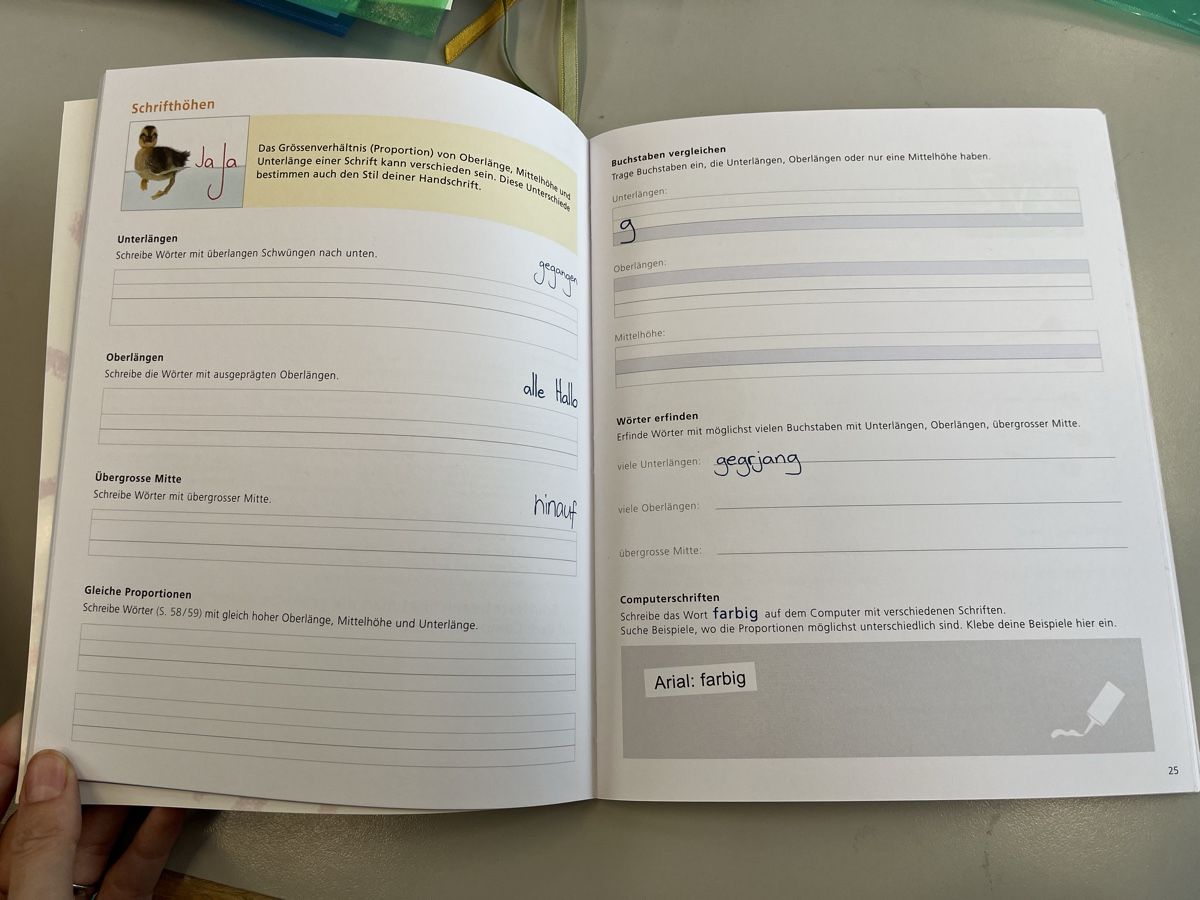 Schrifthöhen
Ja Ja
Das Grössenverhältnis (Proportion) von Oberlänge, Mittelhöhe und
Unterlänge einer Schrift kann verschieden sein. Diese Unterschiede
bestimmen auch den Stil deiner Handschrift.
Unterlängen
Schreibe Wörter mit überlangen Schwüngen nach unten.
gegangen
Oberlängen
Schreibe die Wörter mit ausgeprägten Oberlängen.
alle Hallo
Übergrosse Mitte
Schreibe Wörter mit übergrosser Mitte.
hinauf
Gleiche Proportionen
Schreibe Wörter (S. 58/59) mit gleich hoher Oberlänge, Mittelhöhe und Unterlänge.
Buchstaben vergleichen
Trage Buchstaben ein, die Unterlängen, Oberlängen oder nur eine Mittelhöhe haben.
Unterlängen:
g
Oberlängen:
Mittelhöhe:
Wörter erfinden
Erfinde Wörter mit möglichst vielen Buchstaben mit Unterlängen, Oberlängen, übergrosser Mitte.
viele Unterlängen: gegrjang
viele Oberlängen:
übergrosse Mitte:
Computerschriften
Schreibe das Wort farbig auf dem Computer mit verschiedenen Schriften.
Suche Beispiele, wo die Proportionen möglichst unterschiedlich sind. Klebe deine Beispiele hier ein.
Arial: farbig
25